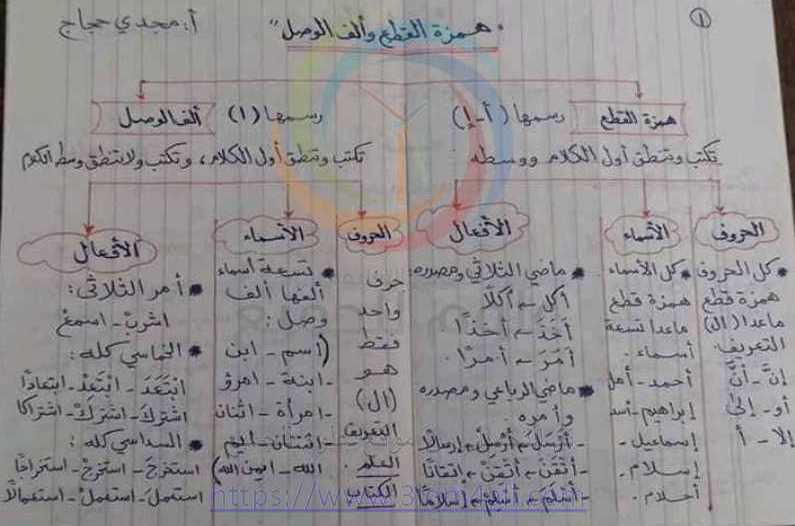 ١
أ: مجدي حجاج
" همزة القطع وألف الوصل "
همزة القطع
رسمها (أ - إ)
تكتب وتنطق أول الكلام ووسطه
الحروف
• كل الحروف
همزة قطع
ماعدا (ال)
التعريف.
إنَّ - أنَّ
أو - إلى
إلا - أ
الأسماء
• كل الأسماء
همزة قطع
ماعدا تسعة
أسماء.
أحمد - أمل
إبراهيم - أسد
إسماعيل -
إسلام -
أحلام.
الأفعال
• ماضي الثلاثي ومصدره:
أكل ← أكلًا
أَخَذَ ← أخذًا
أمَرَ ← أمرًا.
• ماضي الرباعي ومصدره
وأمره.
- أرْسَلَ ← أرْسِلْ ← إرسالًا
- أتْقَنَ ← أتْقِنْ ← إتقانًا
- أسْلَمَ ← أسْلِمْ ← إسلامًا
ألف الوصل
رسمها (ا)
تكتب وتنطق أول الكلام، وتكتب ولا تنطق وسط الكلام
الحروف
حرف
واحد
فقط
هو
(ال)
التعريف
العلم.
الكتاب
الأسماء
• تسعة أسماء
ألفها ألف
وصل:
(اسم - ابن
- ابنة - امرؤ
- امرأة - اثنان
- اثنتان - ايم
الله - ايمن الله)
الأفعال
• أمر الثلاثي:
اشربْ - اسمعْ
• الخماسي كله:
ابْتَعَدَ - ابْتَعِدْ - ابتعادًا
اشتركَ - اشتركْ - اشتراكًا
• السداسي كله:
استخرجَ - استخرجْ - استخراجًا
استعملَ - استعملْ - استعمالًا
https://www